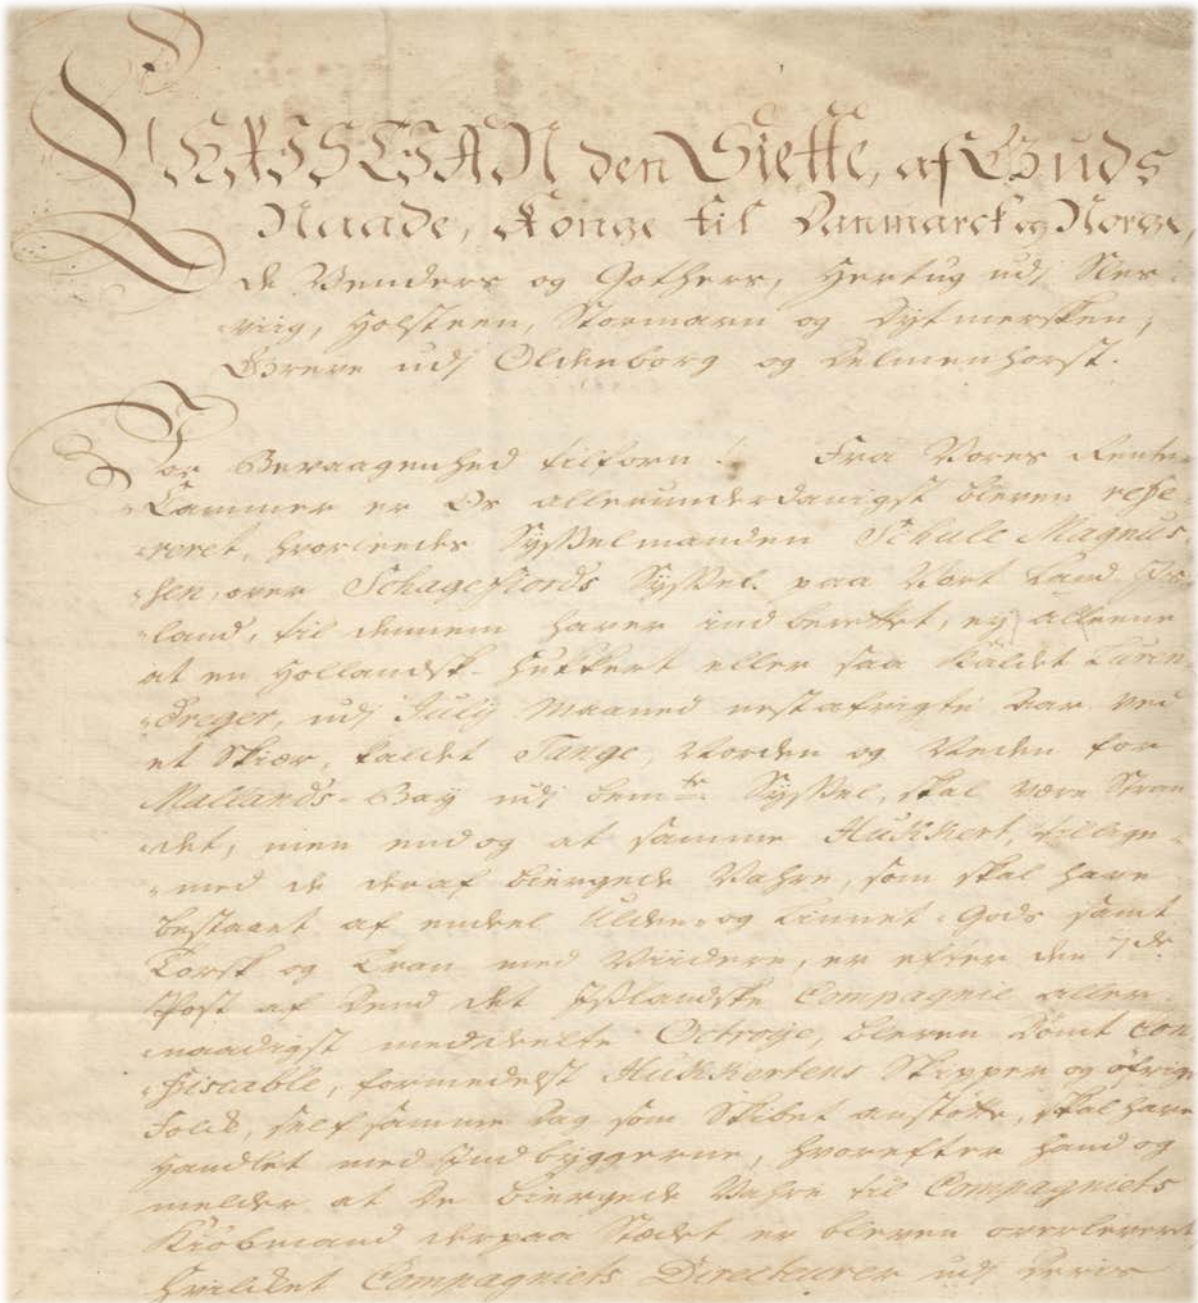 CHRISTIAN den Siette, af Guds
Naade, Konge til Danmarck og Norge,
de Venders og Gothers, Hertug udj Sles-
viig, Holsteen, Stormarn og Dytmersken,
Greve udj Oldenborg og Delmenhorst.
Vor Bevaagenhed tilforn! Fra Vores Rente-
Cammer er Os allerunderdanigst bleven refe-
reret, hvorledes Sysselmanden Schule Magnus-
sen, over Schagefiords Syssel paa Vort Land Is-
land, til dennem haver indberettet, ey alleene
at en Hollandsk Hukkert eller saa kaldet Buren-
dreger, udj July Maaned nest afvigte Aar ved
et Skiær, kaldet Tange, Norden og Neden for
Mallands-Bay udj bemte. Syssel, skal være Stran-
det, men endog at samme Hukkert, tillige-
med de deraf biergede Vahre, som skal have
bestaaet af endeel Ulden- og Linnet-Gods samt
Torsk og Tran med Viidere, er efter den 7de
Post af Dend det Islandske Compagnie aller-
naadigst meddeelte Octroye, bleven dømt con-
fiscable, formedelst Hukkertens Skipper og øfrige
Folck, self samme Dag som Skibet anstødte, skal have
handlet med Indbyggerne, hvorefter hand og
melder at de biergede Vahre til Compagniets
Kiøbmand derpaa Stædet er bleven overleveret
hvilcket Compagniets Directeurer udj deris